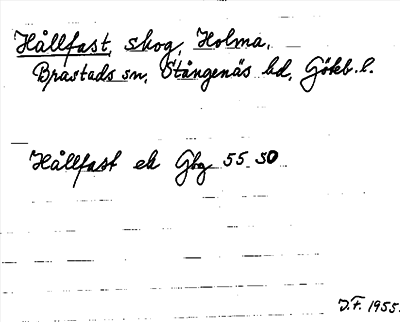 Hållfast, skog, Holma,
Brastads sn, Stångenäs hd, Gökb. l.
Hållfast ek Gbg 55 50
J.F. 1955.